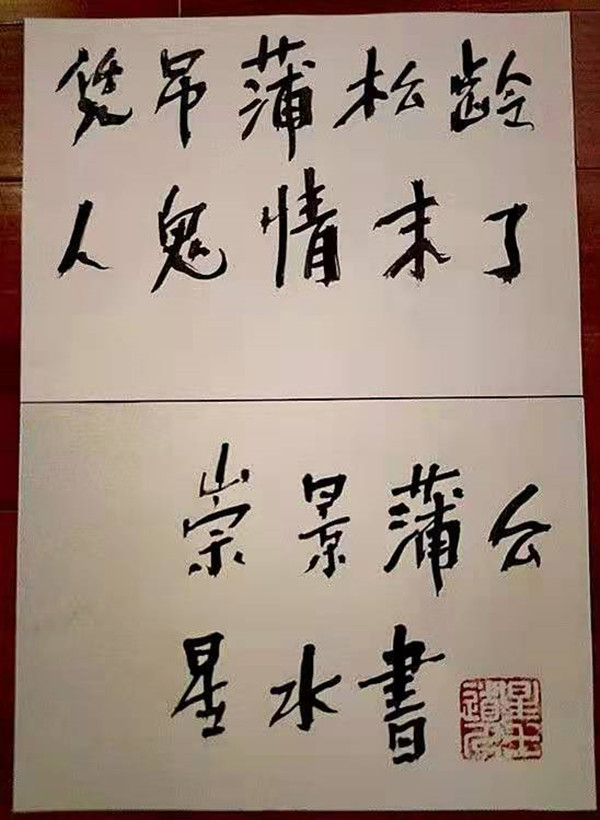 凭吊蒲松龄
人鬼情未了
崇景蒲公
星水書